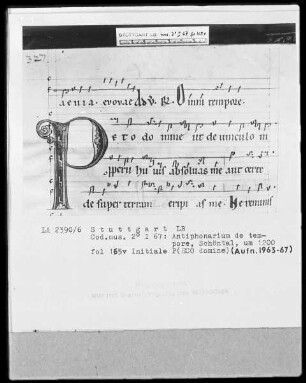 327
aeuia. evovae Ad V. R. Omni tempore.
Peto domine ut de vinculo in
properii huius absoluas me aut certe
de super terram eripias me. Ne reminis
LA 2390/6 Stuttgart LB
Cod.mus. 2° I 67: Antiphonarium de tem-
pore, Schöntal, um 1200
fol 165v Initiale P(ETO domine) (Aufn.1963-67)